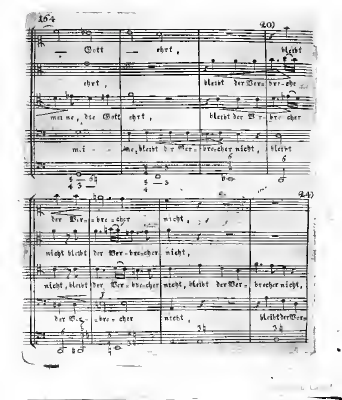 164 20)
— Gott — ehrt, bleibt
ehrt, bleibt der Ver= bre=che
meine, die Gott ehrt, bleibt der V r= bre= cher
m.i — ne, bleibt d r Ver= brecher nicht, bleibt
6 6
5 — 6
4 3 — 5 —
4 3
24)
der Ver= =bre= =cher nicht,
nicht bleibt der Verbrecher nicht,
nicht, bleibt der Ver= brecher nicht, bleibt der Ver= brecher nicht,
der V.r= =bre= cher nicht, bleibt der Ver=